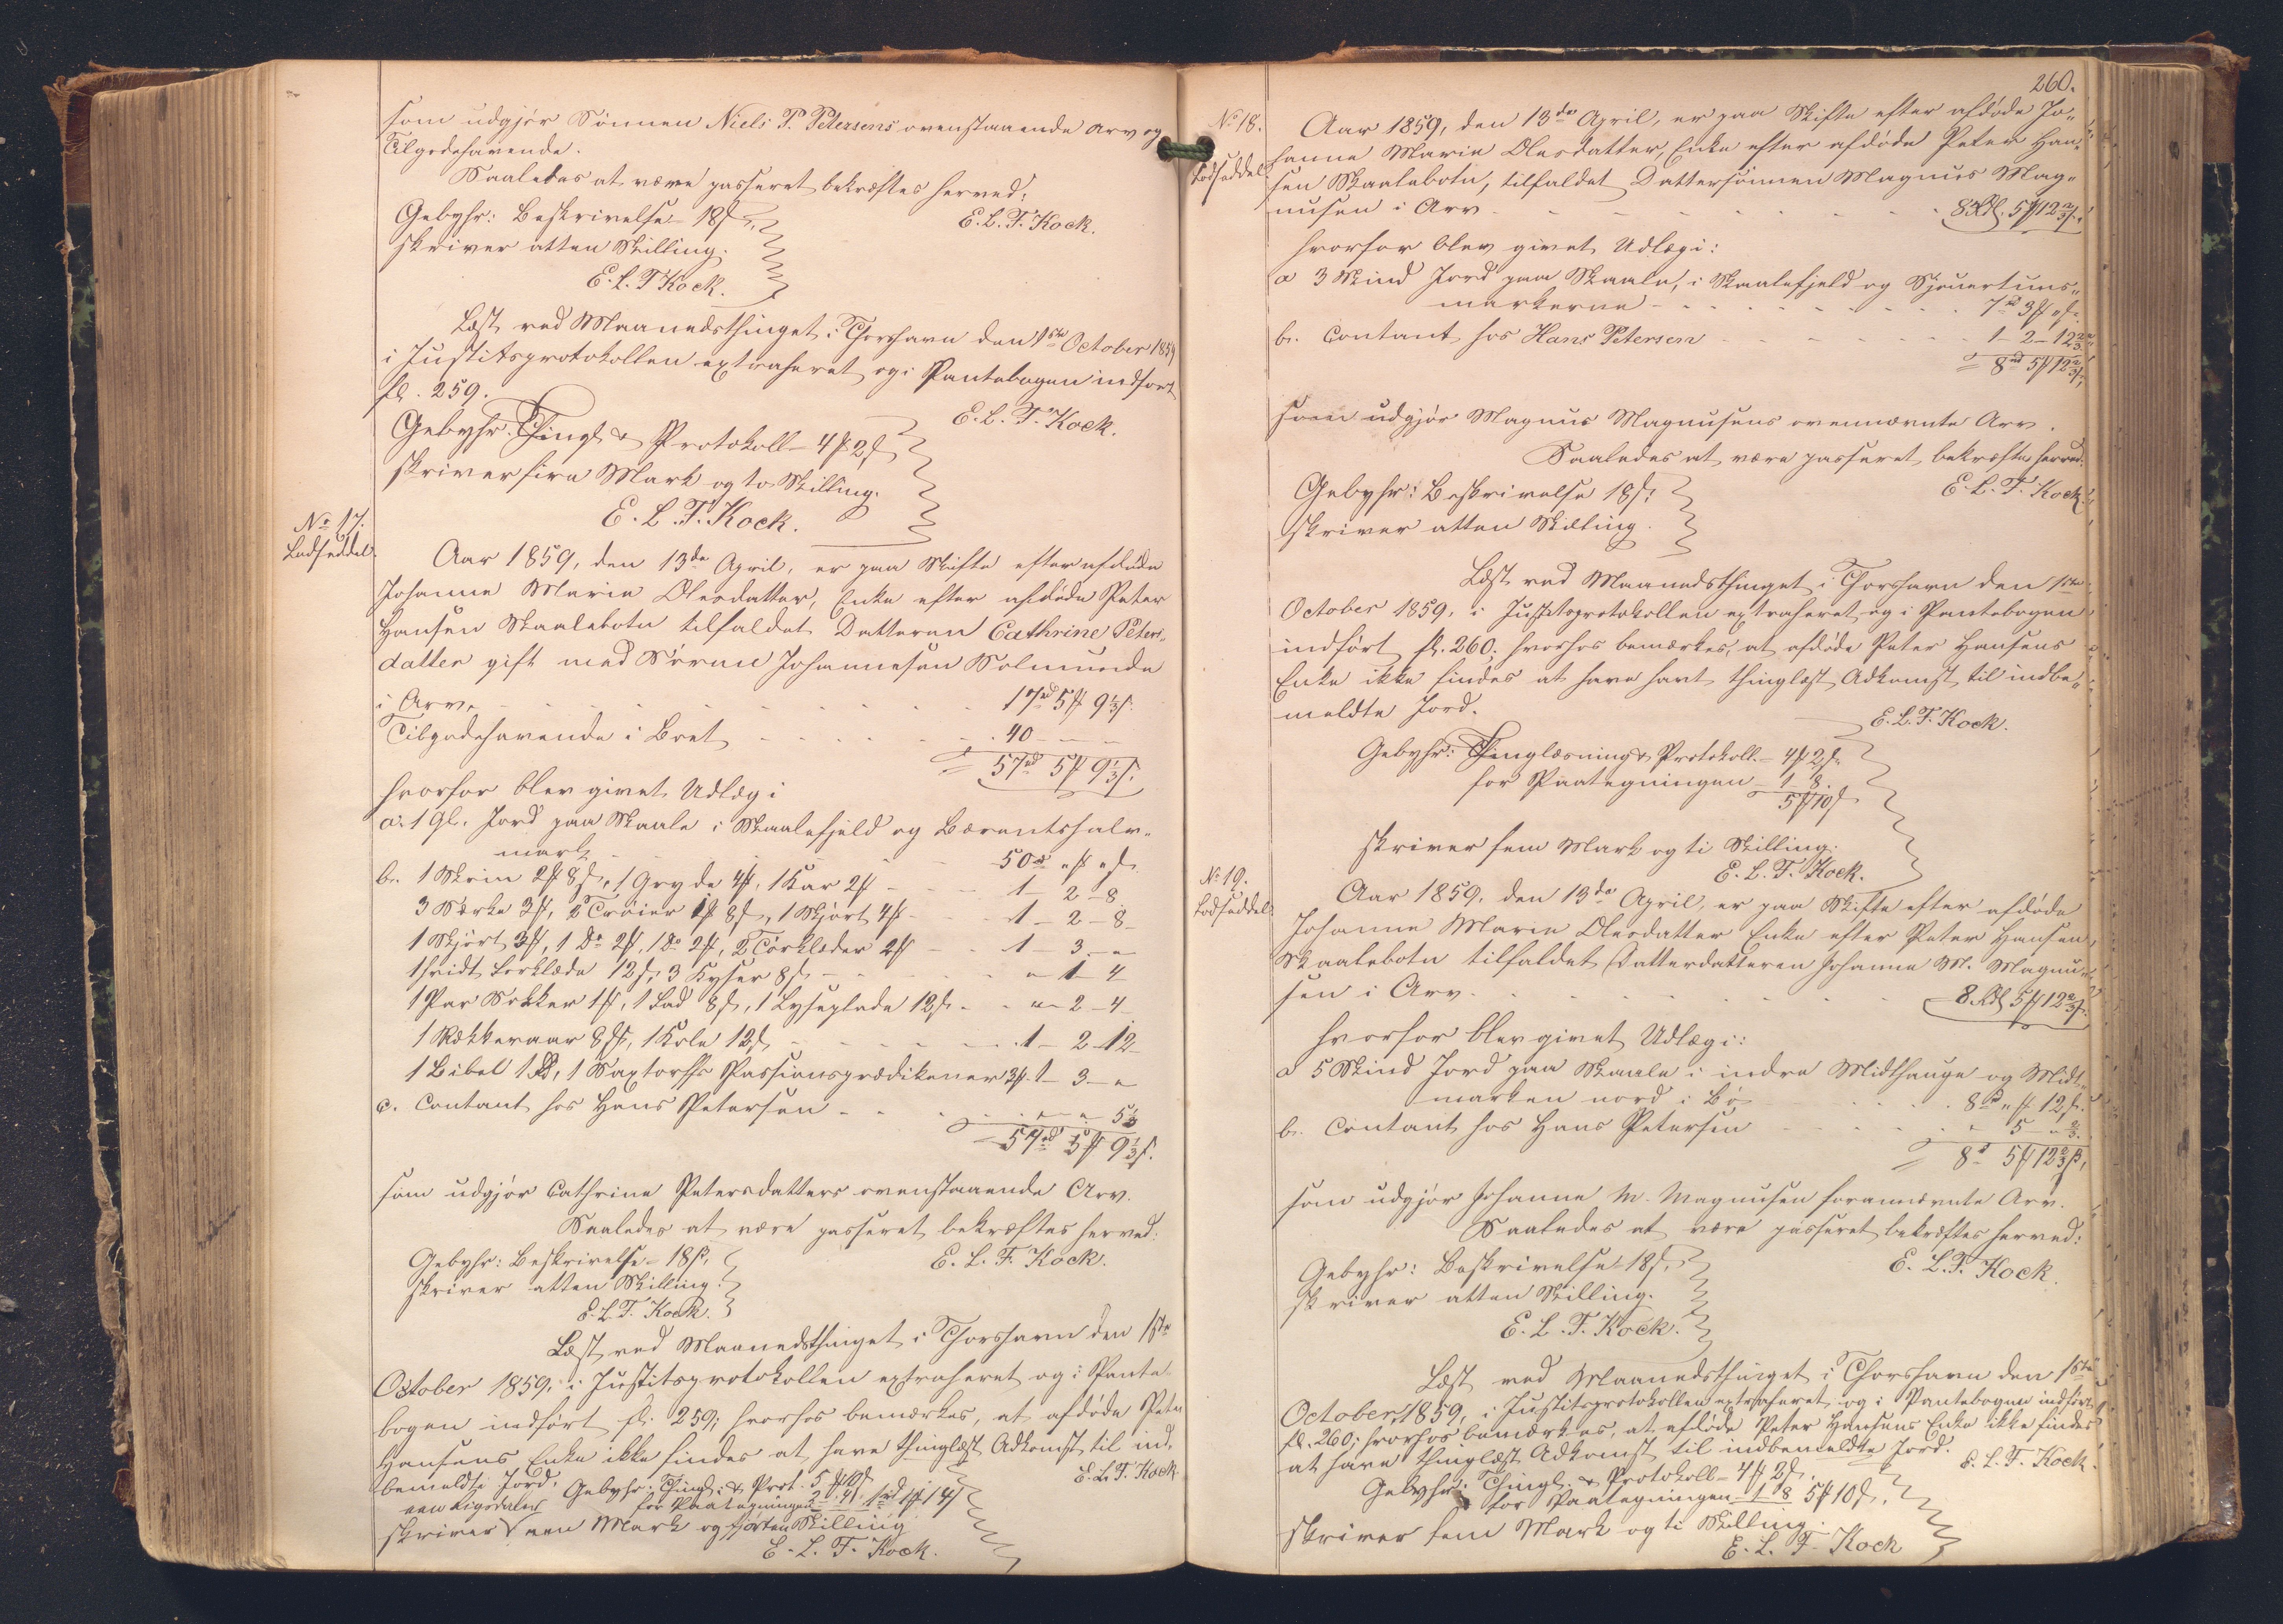 som udgjør Sønnen Niels P. Petersens ovenstaaende Arv og
Tilgodehavende.
Saaledes at være passeret bekræftes herved:
Gebyhr: Beskrivelse - 18 ß,
E. L. F. Kock.
skriver atten Skilling.
E. L. F Kock.
Læst ved Maanedsthinget i Thorshavn den 1ste October 1859
i Justitsprotokollen extraheret og i Pantebogen indført
fl. 259.
E. L. F. Kock.
Gebyhr. Thingl. & Protokoll - 4 ℳ 2 ß
skriver fire Mark og to Skilling.
E. L. F. Kock.
No 17.
Lodseddel.
Aar 1859, den 13de April, er paa Skifte efter afdøde
Johanne Marie Olesdatter, Enke efter afdøde Peter
Hansen Skaalebotn tilfaldet Datteren Cathrine Peters-
datter gift med Søren Johannesen Solmunde
i Arv. 17rd 5 ℳ 9 1/3 ß.
Tilgodehavende i Boet 40 - -
57rd 5 ℳ 9 1/3 ß.
hvorfor blev givet Udlæg i
a. 1 Gl. Jord paa Skaale i Skaalefjeld og Børentshalv-
mark 50rd " ℳ " ß
b. 1 Skrin 2 ℳ 8 ß, 1 Gryde 4 ℳ, 1 Kar 2 ℳ 1 - 2 - 8
3 Særke 3 ℳ, 2 Trøier 1 ℳ 8 ß, 1 Skjørt 4 ℳ 1 - 2 - 8
1 Skjørt 3 ℳ, 1 Do 2 ℳ, 1 Do 2 ℳ, 2 Tørklæder 2 ℳ 1 - 3 - "
1 hvidt Forklæde 12 ß, 3 Kyser 8 ß " 1 - 4
1 Par Sokker 1 ℳ, 1 Lad 8 ß, 1 Lyseplade 12 ß " 2 - 4
1 Rokkevaar 8 ℳ, 1 Kole 12 ß 1 - 2 - 12
1 Bibel 1 Rd, 1 Saxtorffs Passionsprædikener 3 ℳ. 1 - 3 - "
c. Contant hos Hans Petersen " - " 5 1/3
57rd 5 ℳ 9 1/3 ß.
som udgjør Cathrine Petersdatters ovenstaaende Arv.
Saaledes at være passeret bekræftes herved:
Gebyhr: Beskrivelse - 18 ß,
E. L. F. Kock.
skriver atten Skilling.
E. L. F. Kock.
Læst ved Maanedsthinget i Thorshavn den 1ste
October 1859, i Justitsprotokollen extraheret og i Pante-
bogen indført fl. 259; hvorhos bemærkes, at afdøde Peter
Hansens Enke ikke findes at have thinglæst Adkomst til ind-
bemeldte Jord. Gebyhr: Thingl. & Prot. 5 ℳ 10 ß
E. L. F. Kock.
een Rigsdaler for Paategningen 2 " 4 ß. 1rd 1 ℳ 14 ß
skriver een Mark og fjorten Skilling
E. L. F. Kock.
260.
No 18.
Lodseddel.
Aar 1859, den 13de April, er paa Skifte efter afdøde Jo-
hanne Marie Olesdatter, Enke efter afdøde Peter Han-
sen Skaalebotn, tilfaldet Dattersønnen Magnus Mag-
nusen i Arv 8 Rdl. 5 ℳ 12 2/3 ß.
hvorfor blev givet Udlæg i:
a 3 Skind Jord paa Skaale, i Skaalefjeld og Sjøuertuns-
markerne 7rd 3 ℳ " ß.
b. Contant hos Hans Petersen 1 - 2 - 12 2/3
8rd 5 ℳ 12 2/3 ß,
som udgjør Magnus Magnusens ovennævnte Arv.
Saaledes at være passeret bekræftes herved:
Gebyhr: Beskrivelse 18 ß:
E. L. F. Kock.
skriver atten Skilling.
Læst ved Maanedsthinget i Thorshavn den 1ste
October 1859, i Justitsprotokollen extraheret og i Pantebogen
indført fl. 260; hvorhos bemærkes, at afdøde Peter Hansens
Enke ikke findes at have havt thinglæst Adkomst til indbe-
meldte Jord.
E. L. F. Kock.
Gebyhr: Thinglæsning & Protokoll. - 4 ℳ 2 ß
for Paategningen 1 8.
5 ℳ 10 ß
skriver fem Mark og ti Skilling.
E. L. F. Kock.
No 19.
Lodseddel.
Aar 1859. den 13de April, er paa Skifte efter afdøde
Johanne Marie Olesdatter Enke efter Peter Hansen
Skaalebotn tilfaldet Datterdatteren Johanne M. Magnu-
sen i Arv. 8 Rdl 5 ℳ 12 2/3 ß.
hvorfor blev givet Udlæg i:
a 5 Skind Jord paa Skaale i indre Midthauge og Midt-
marken nord i Bø 8rd " ℳ 12 ß.
b. Contant hos Hans Petersen " 5 - " 2/3.
8rd 5 ℳ 12 2/3 ß,
som udgjør Johanne M. Magnusen forannævnte Arv.
Saaledes at være passeret bekræftes herved:
Gebyhr: Beskrivelse - 18 ß.
E. L. F. Kock.
skriver atten Skilling.
E. L. F. Kock.
Læst ved Maanedsthinget i Thorshavn den 1ste
October 1859, i Justitsprotokollen extraheret og i Pantebogen indført
fl. 260; hvorhos bemærkes, at afdøde Peter Hansens Enke ikke findes
at have thinglæst Adkomst til indbemeldte Jord.
E. L. F. Kock.
Gebyhr: Thingl. & Protokoll - 4 ℳ 2 ß.
for Paategningen 1 8 5 ℳ 10 ß.
skriver fem Mark og ti Skilling.
E. L. F. Kock